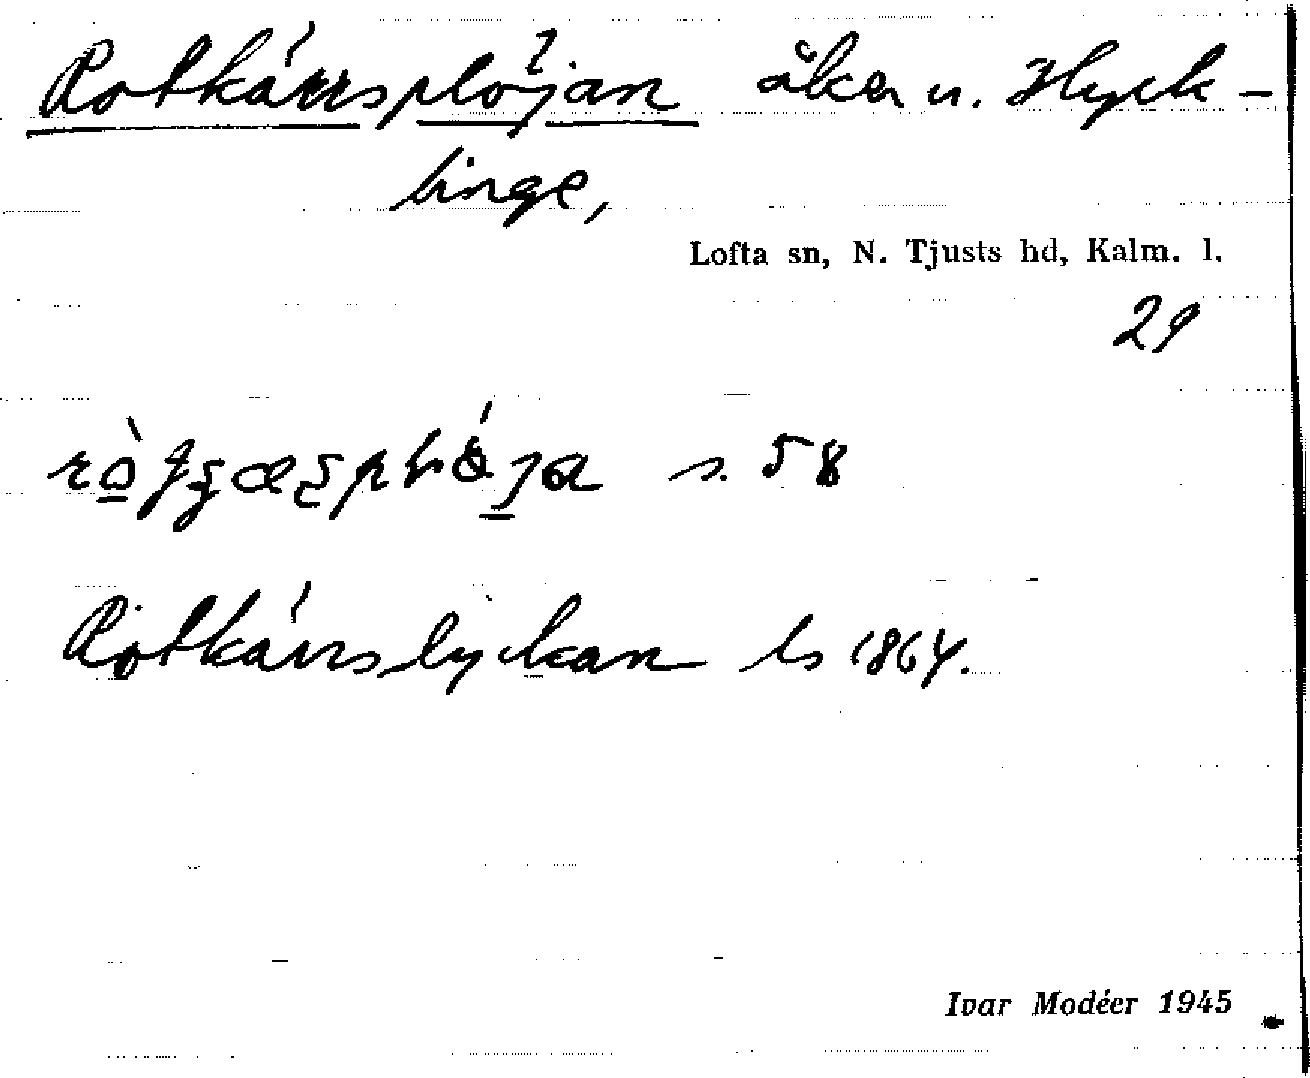 Rotkärrsplöjan åker u. Hyck-
linge,
Lofta sn, N. Tjusts hd, Kalm. l.
29
s. 58
Rotkärrslyckan ls 1864.
Ivar Modéer 1945